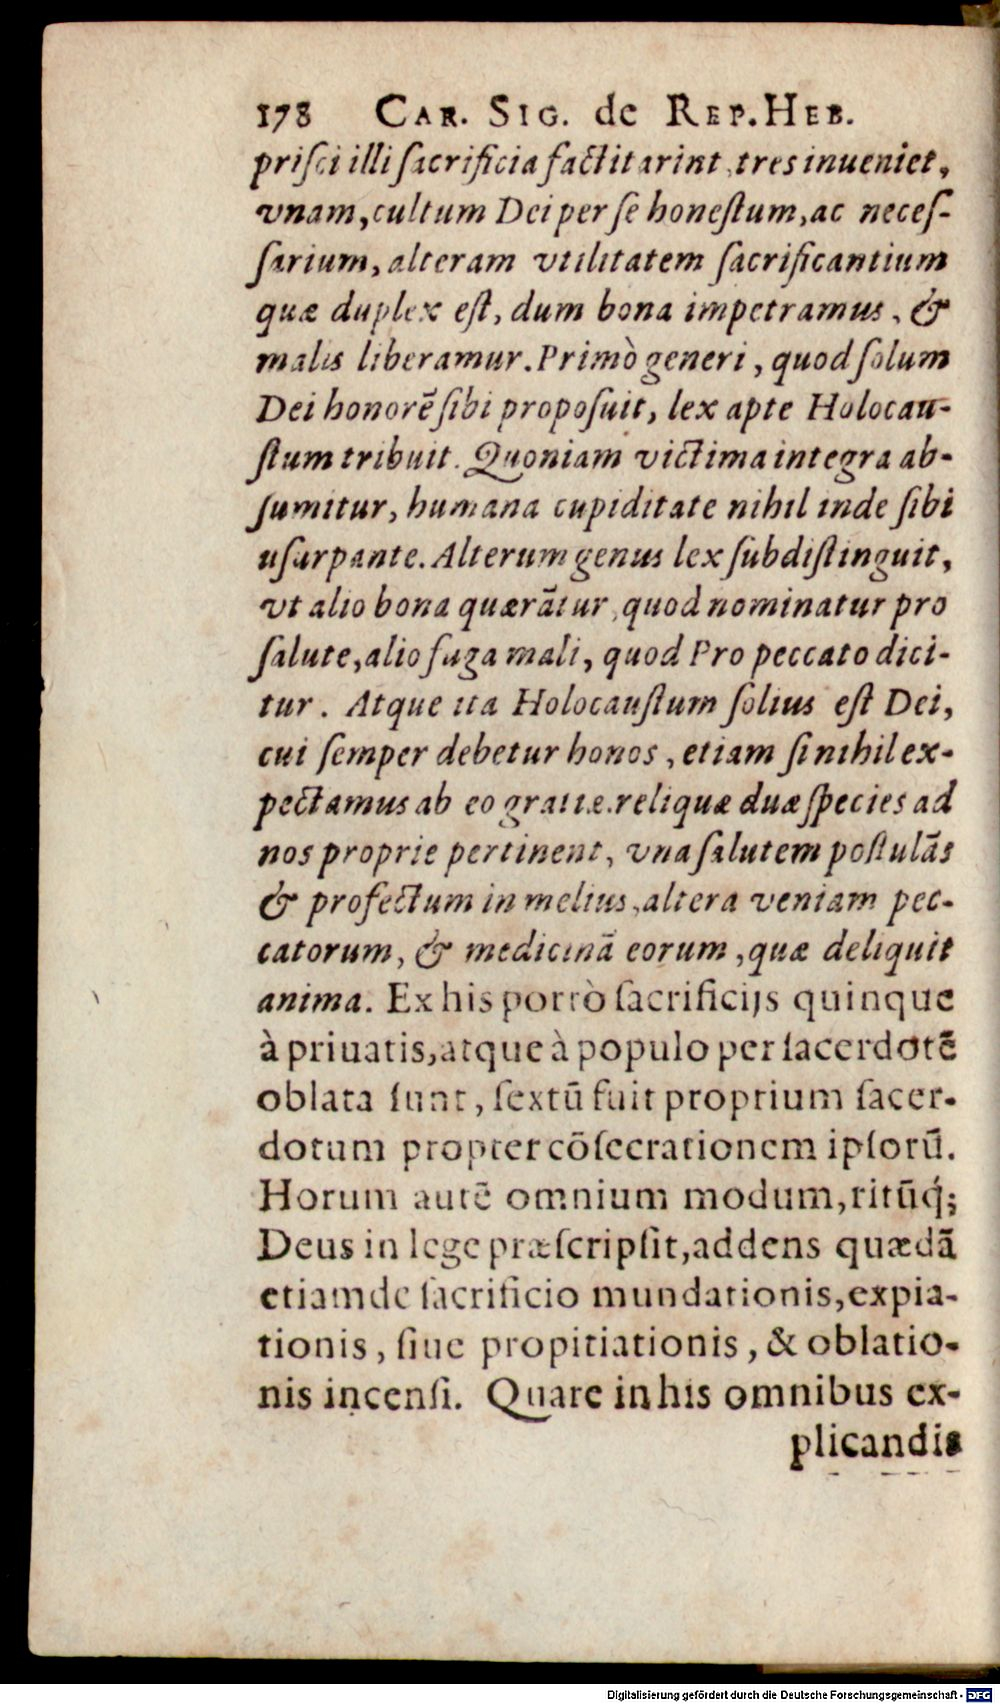 178 CAR. SIG. de REP. HEB.
priſci illi ſacrificia factitarint, tres inueniet,
vnam, cultum Dei per ſe honeſtum, ac neceſ-
ſarium, alteram vtilitatem ſacrificantium
quæ duplex eſt, dum bona impetramus, &
malis liberamur. Primò generi, quod ſolum
Dei honorē ſibi propoſuit, lex apte Holocau-
ſtum tribuit. Quoniam victima integra ab-
ſumitur, humana cupiditate nihil inde ſibi
uſurpante. Alterum genus lex ſubdiſtinguit,
vt alio bona quærātur, quod nominatur pro
ſalute, alio fuga mali, quod Pro peccato dici-
tur. Atque ita Holocauſtum ſolius eſt Dei,
cui ſemper debetur honos, etiam ſi nihil ex-
pectamus ab eo gratiæ. reliquæ duæ ſpecies ad
nos proprie pertinent, vna ſalutem poſtulās
& profectum in melius, altera veniam pec-
catorum, & medicinā eorum, quæ deliquit
anima. Ex his porrò ſacrificijs quinque
à priuatis, atque à populo per ſacerdotē
oblata ſunt, ſextū fuit proprium ſacer-
dotum propter cōſecrationem ipſorū.
Horum autē omnium modum, ritūq́;
Deus in lege præſcripſit, addens quædā
etiam de ſacrificio mundationis, expia-
tionis, ſiue propitiationis, & oblatio-
nis incenſi. Quare in his omnibus ex-
plicandis
Digitalisierung gefördert durch die Deutsche Forschungsgemeinschaft - DFG